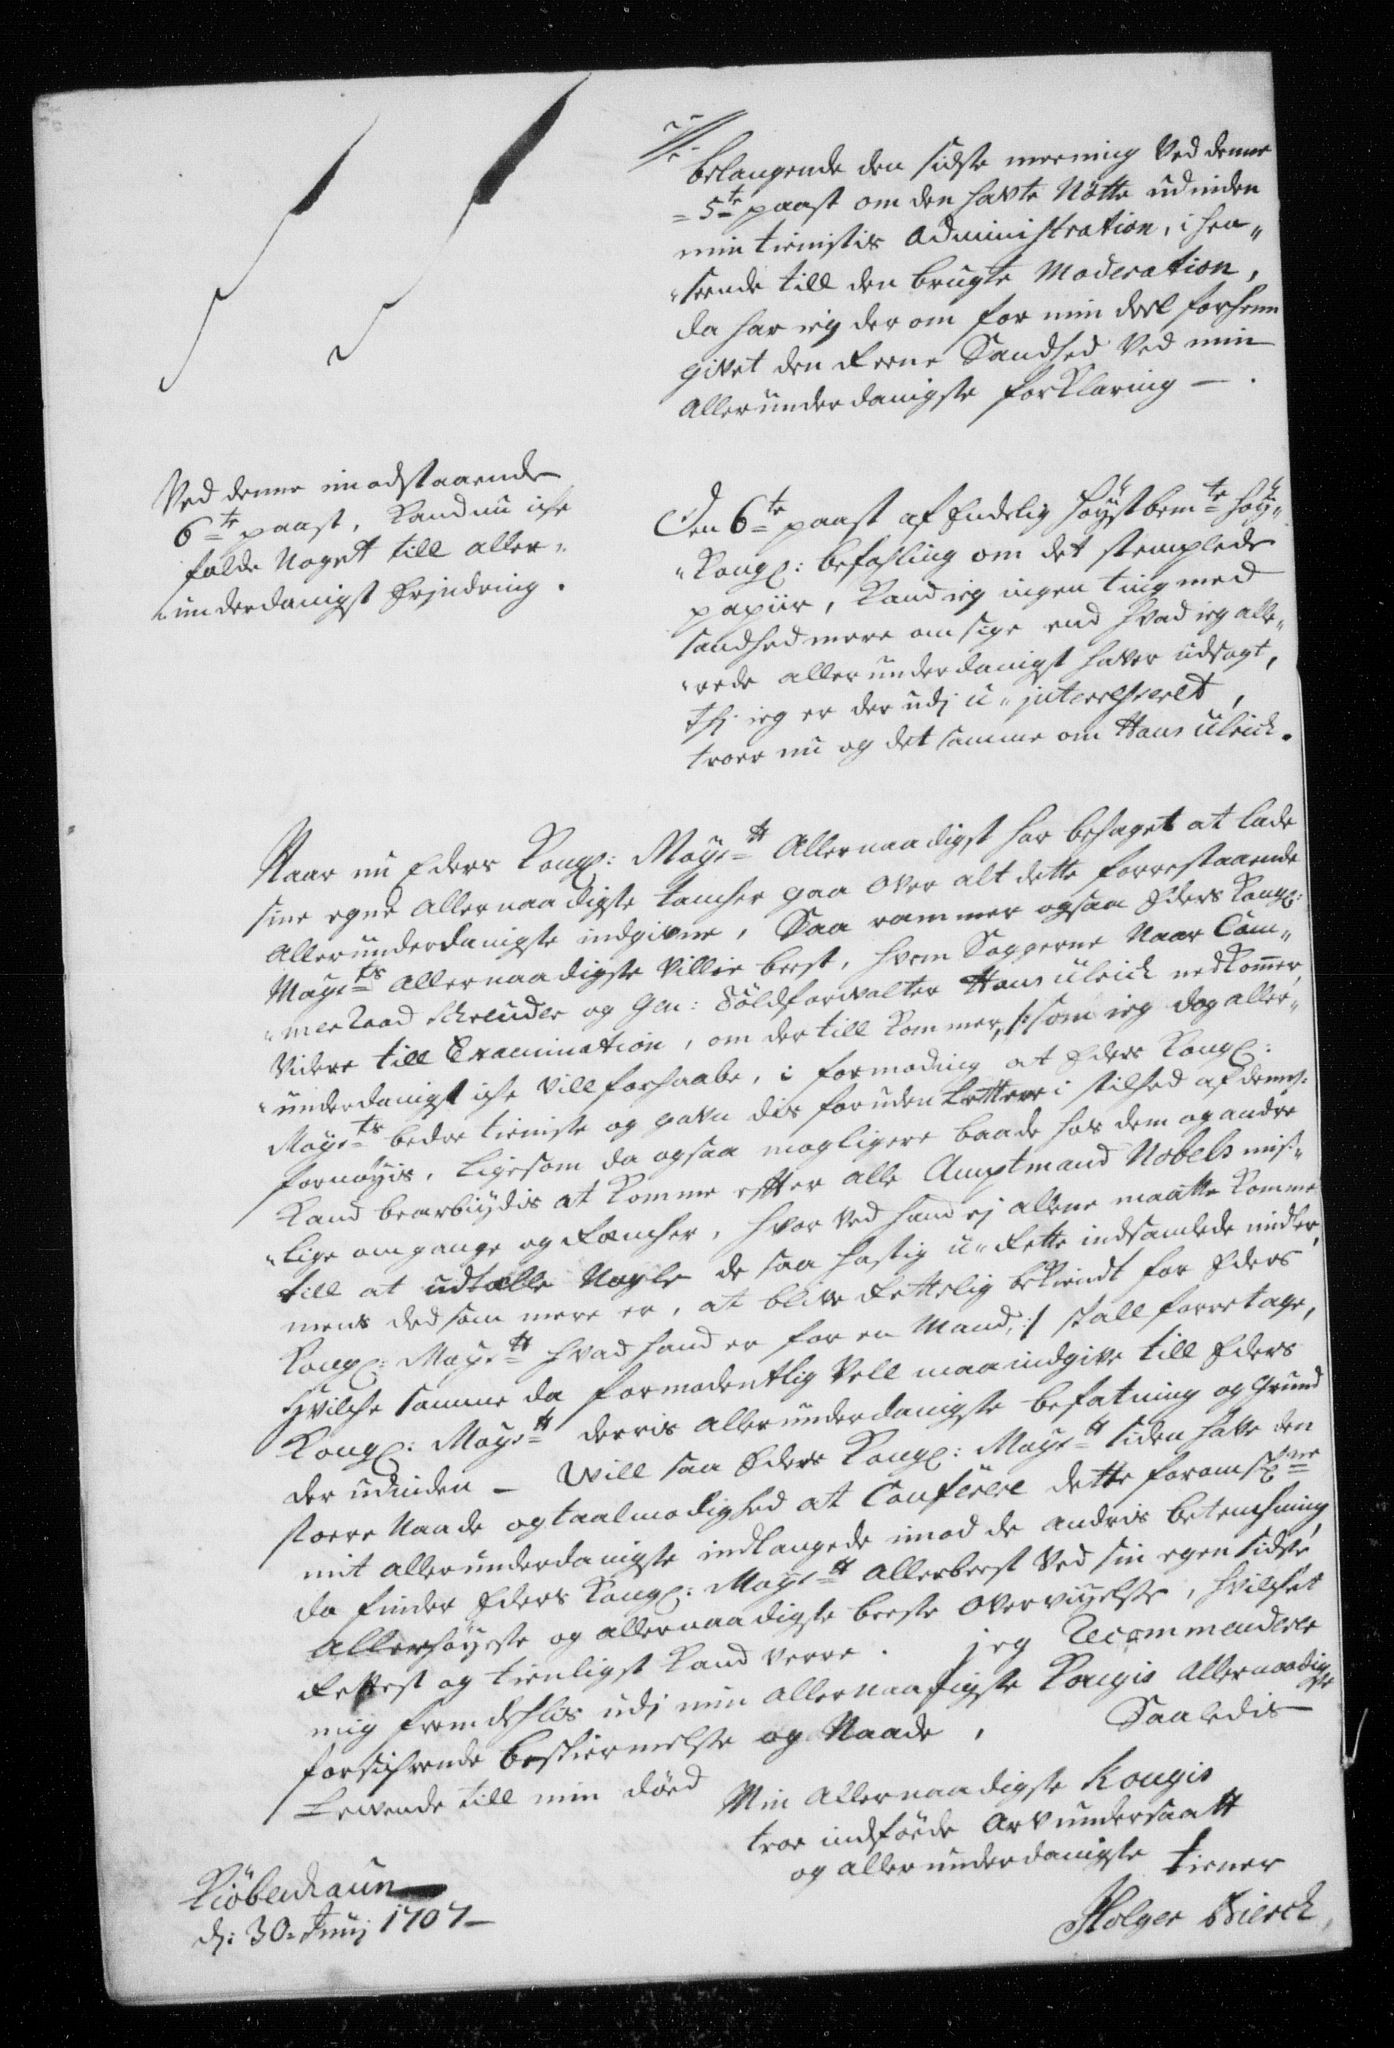 belangende den sidste meening Ved denne
5te paast om den hafte Nötte udinden
min tienistis Administration, i hen„
„seende till den brugte Moderation,
da har ieg der om for min deel forhenn
givet den Reene Sandhed Ved min
allerunderdanigste forklaring — .
Ved denne imodstaaende
6te paast, kand nu iche
falde Noget till aller„
„underdanigst Erindring.
Den 6te paast af Endelig Höystbemte Höy„
„Kongl: befahling om det stemplede
papiir, kand ieg ingen ting med
sandhed mere om sige end hvad ieg alle„
„rede allerunderdanigst haver udsagt,
thj ieg er der udj u„jnteresseret,
troer nu og det samme om Hans Ulrich.
Naar nu Eders Kongl: Mayestt Allernaadigst har behaget at lade
sine egne Allernaadigste tancher gaa over alt dette forrestaaende
Allerunderdanigste indgivne, Saa rammer ogsaa Eders Kongl:
Mayests Allernaadigste Villie best, hvem Sagerne Naar Cam„
„mer Raad Schreuder og Gen: Toldforvalter Hans Ulrich nedkommer,
Videre till Examination, om der till kommer, /: som ieg dog aller„
„underdanigst iche vill forhaabe, i formoding at Eders Kongl:
Mayests bedre tieniste og gavn dis foruden lettere i stilhed af dennem
fornöyis, ligesom da ogsaa mageligere baade hos dem og andre
kand bearbiydis at komme efter alle Amptmand Nobels mis„
„lige omgange og Rencher, hvor Ved hand ej allene maatte komme
till at udtælle Nogle de saa hastig u„Rette indsamlede midler,
mens ded som mere er, at blive Rettelig bekiendt for Eders
Kongl: Mayestt hvad hand er for en Mand, :/ skall forretage,
hvilche samme da formodentlig Vell maa indgive till Eders
Kongl: Mayestt derris allerunderdanigste befatning og Grund
der udinden — Will saa Eders Kongl: Mayestt siden have den
stoere Naade og taalmodighed at Conferere dette
mit allerunderdanigste indlangede imod de andris betenchning,
da finder Eders Kongl: Mayestt allerbest Ved sin egen sidste
Allerhöyeste og allernaadigste beste overveyelse, hvilchet
Rettest og tienligst kand verre. jeg Recommendere
mig fremdehlis udj min Allernaadigste Kongis Allernaadigste
forsichrende beskiermelse og Naade, Saaledis
Levende till min död
Min Allernaadigste Kongis
troe indföede Arvundersaatt
og allerunderdanigste tiener
Holger
Kiöbenhaun
dj: 30. Junj 1707